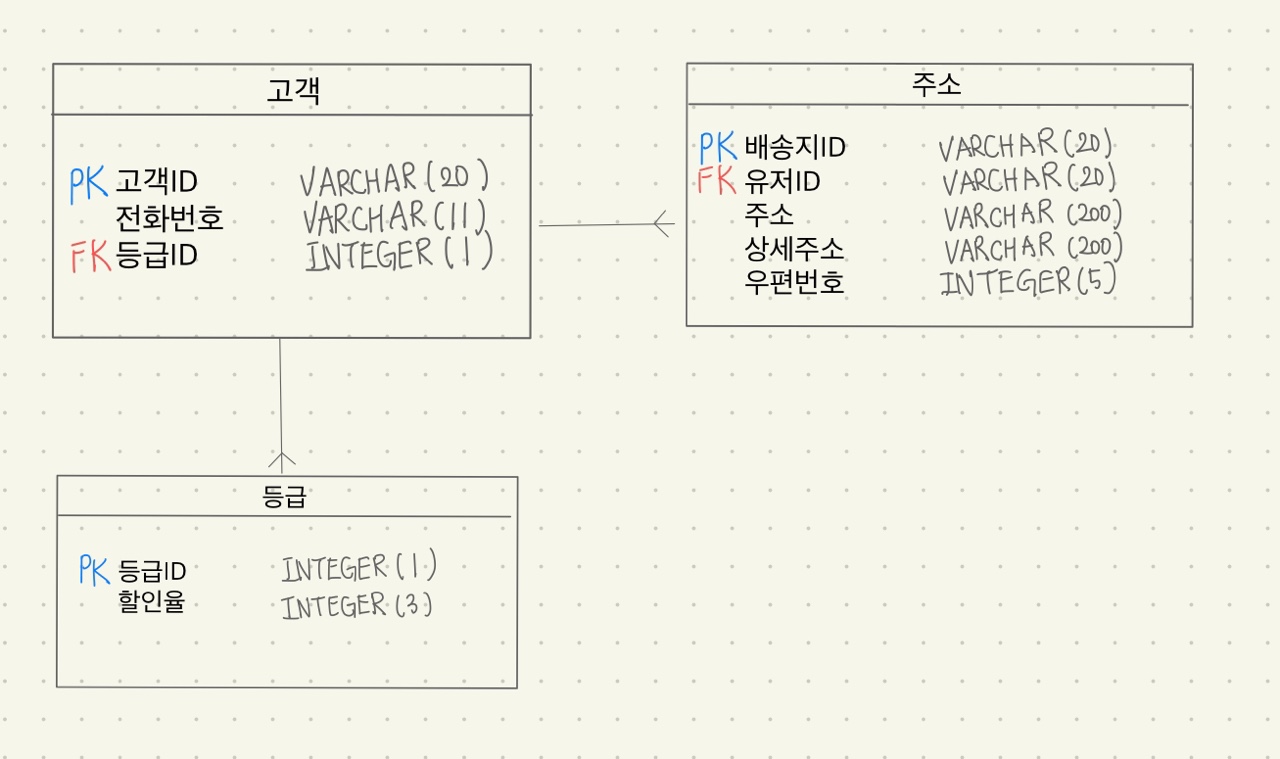 고객
PK 고객ID VARCHAR(20)
전화번호 VARCHAR(11)
FK 등급ID INTEGER(1)
주소
PK 배송지ID VARCHAR(20)
FK 유저ID VARCHAR(20)
주소 VARCHAR(200)
상세주소 VARCHAR(200)
우편번호 INTEGER(5)
등급
PK 등급ID INTEGER(1)
할인율 INTEGER(3)